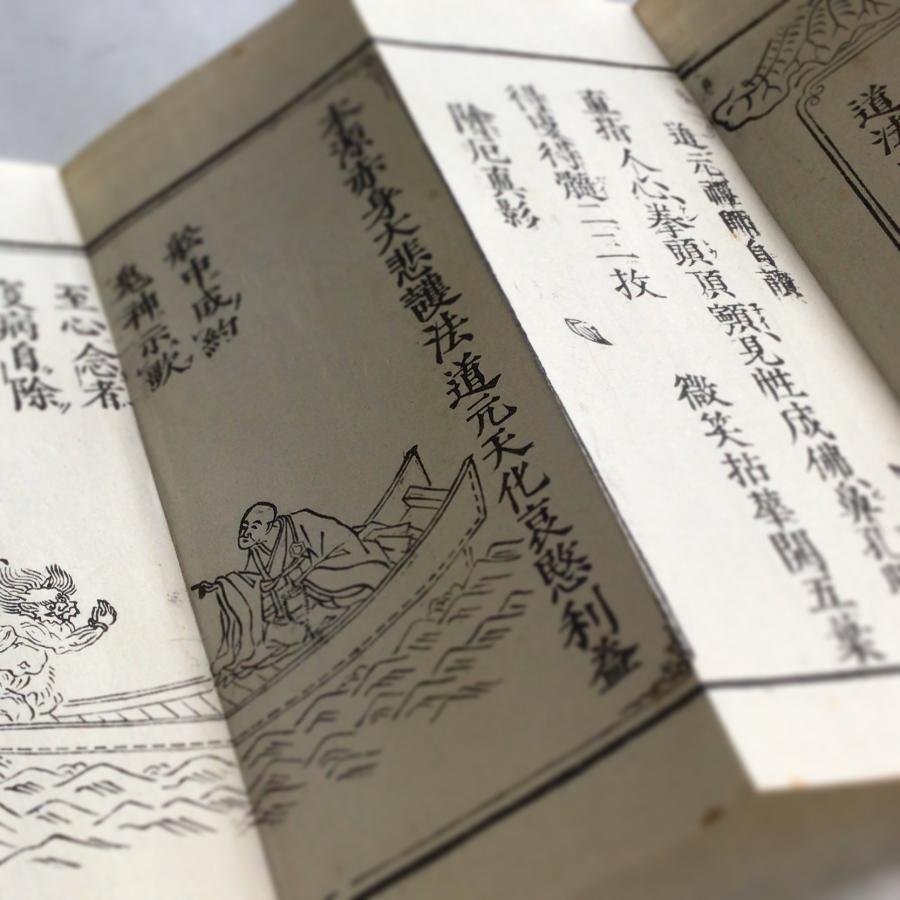 道法
道元禪師自讃
直指人心拳頭頂𩕳見性成佛鼻孔
得皮得髓二三枚 微笑拈華開五葉
除厄真影
本源亦身大悲護法道元天化哀愍利益
船中成約
鬼神示
至心念者
病自除